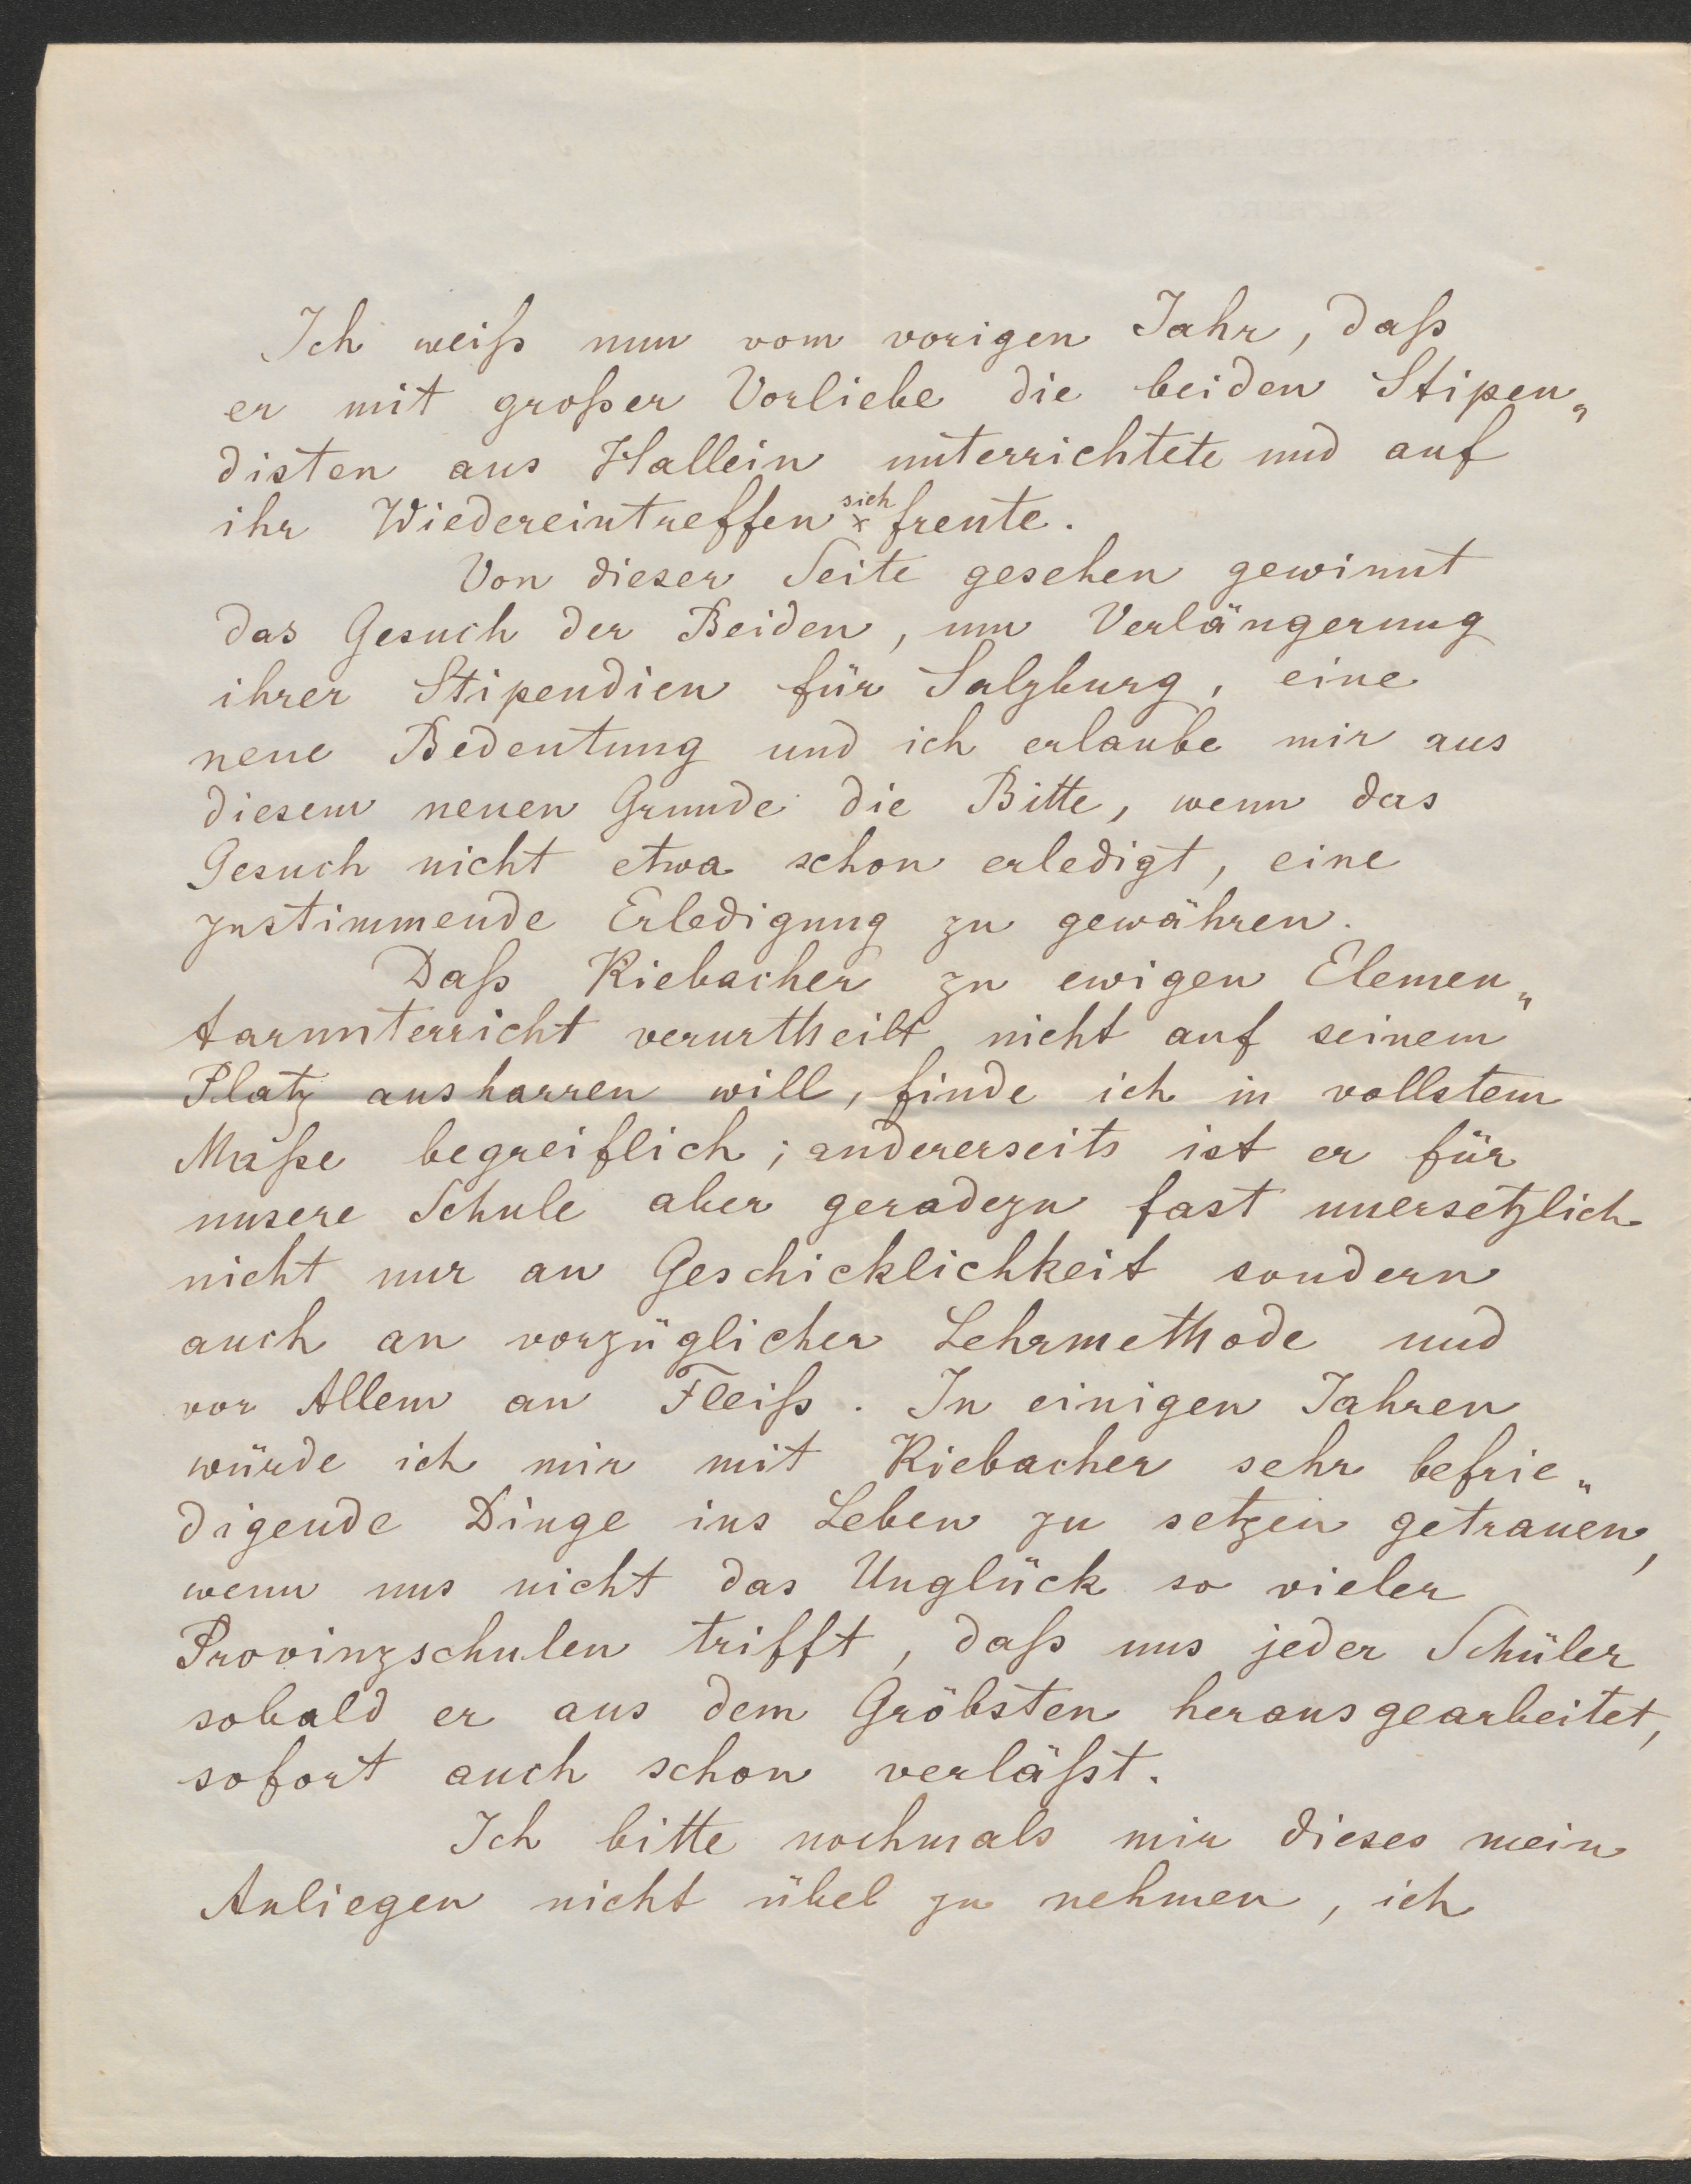 Ich weiß nun vom vorigen Jahr, daß
er mit großer Vorliebe die beiden Stipen„
disten aus Hallein unterrichtete und auf
ihr Wiedereintreffen sich freute.
Von dieser Seite gesehen gewinnt
das Gesuch der Beiden, um Verlängerung
ihrer Stipendien für Salzburg, eine
neue Bedeutung und ich erlaube mir aus
diesem neuen Grunde die Bitte, wenn das
Gesuch nicht etwa schon erledigt, eine
zustimmende Erledigung zu gewähren.
Daß Riebacher zu ewigen Elemen„
tarunterricht verurtheilt nicht auf seinem
Platz ausharren will, finde ich in vollstem
Maße begreiflich; andererseits ist er für
unsere Schule aber geradezu fast unersetzlich
nicht nur an Geschicklichkeit sondern
auch an vorzüglicher Lehrmethode und
vor Allem an Fleiß. In einigen Jahren
würde ich mir mit Riebacher sehr befrie„
digende Dinge ins Leben zu setzen getrauen,
wenn uns nicht das Unglück so vieler
Provinzschulen trifft, daß uns jeder Schüler
sobald er aus dem Gröbsten herausgearbeitet,
sofort auch schon verläßt.
Ich bitte nochmals mir dieses mein
Anliegen nicht übel zu nehmen, ich